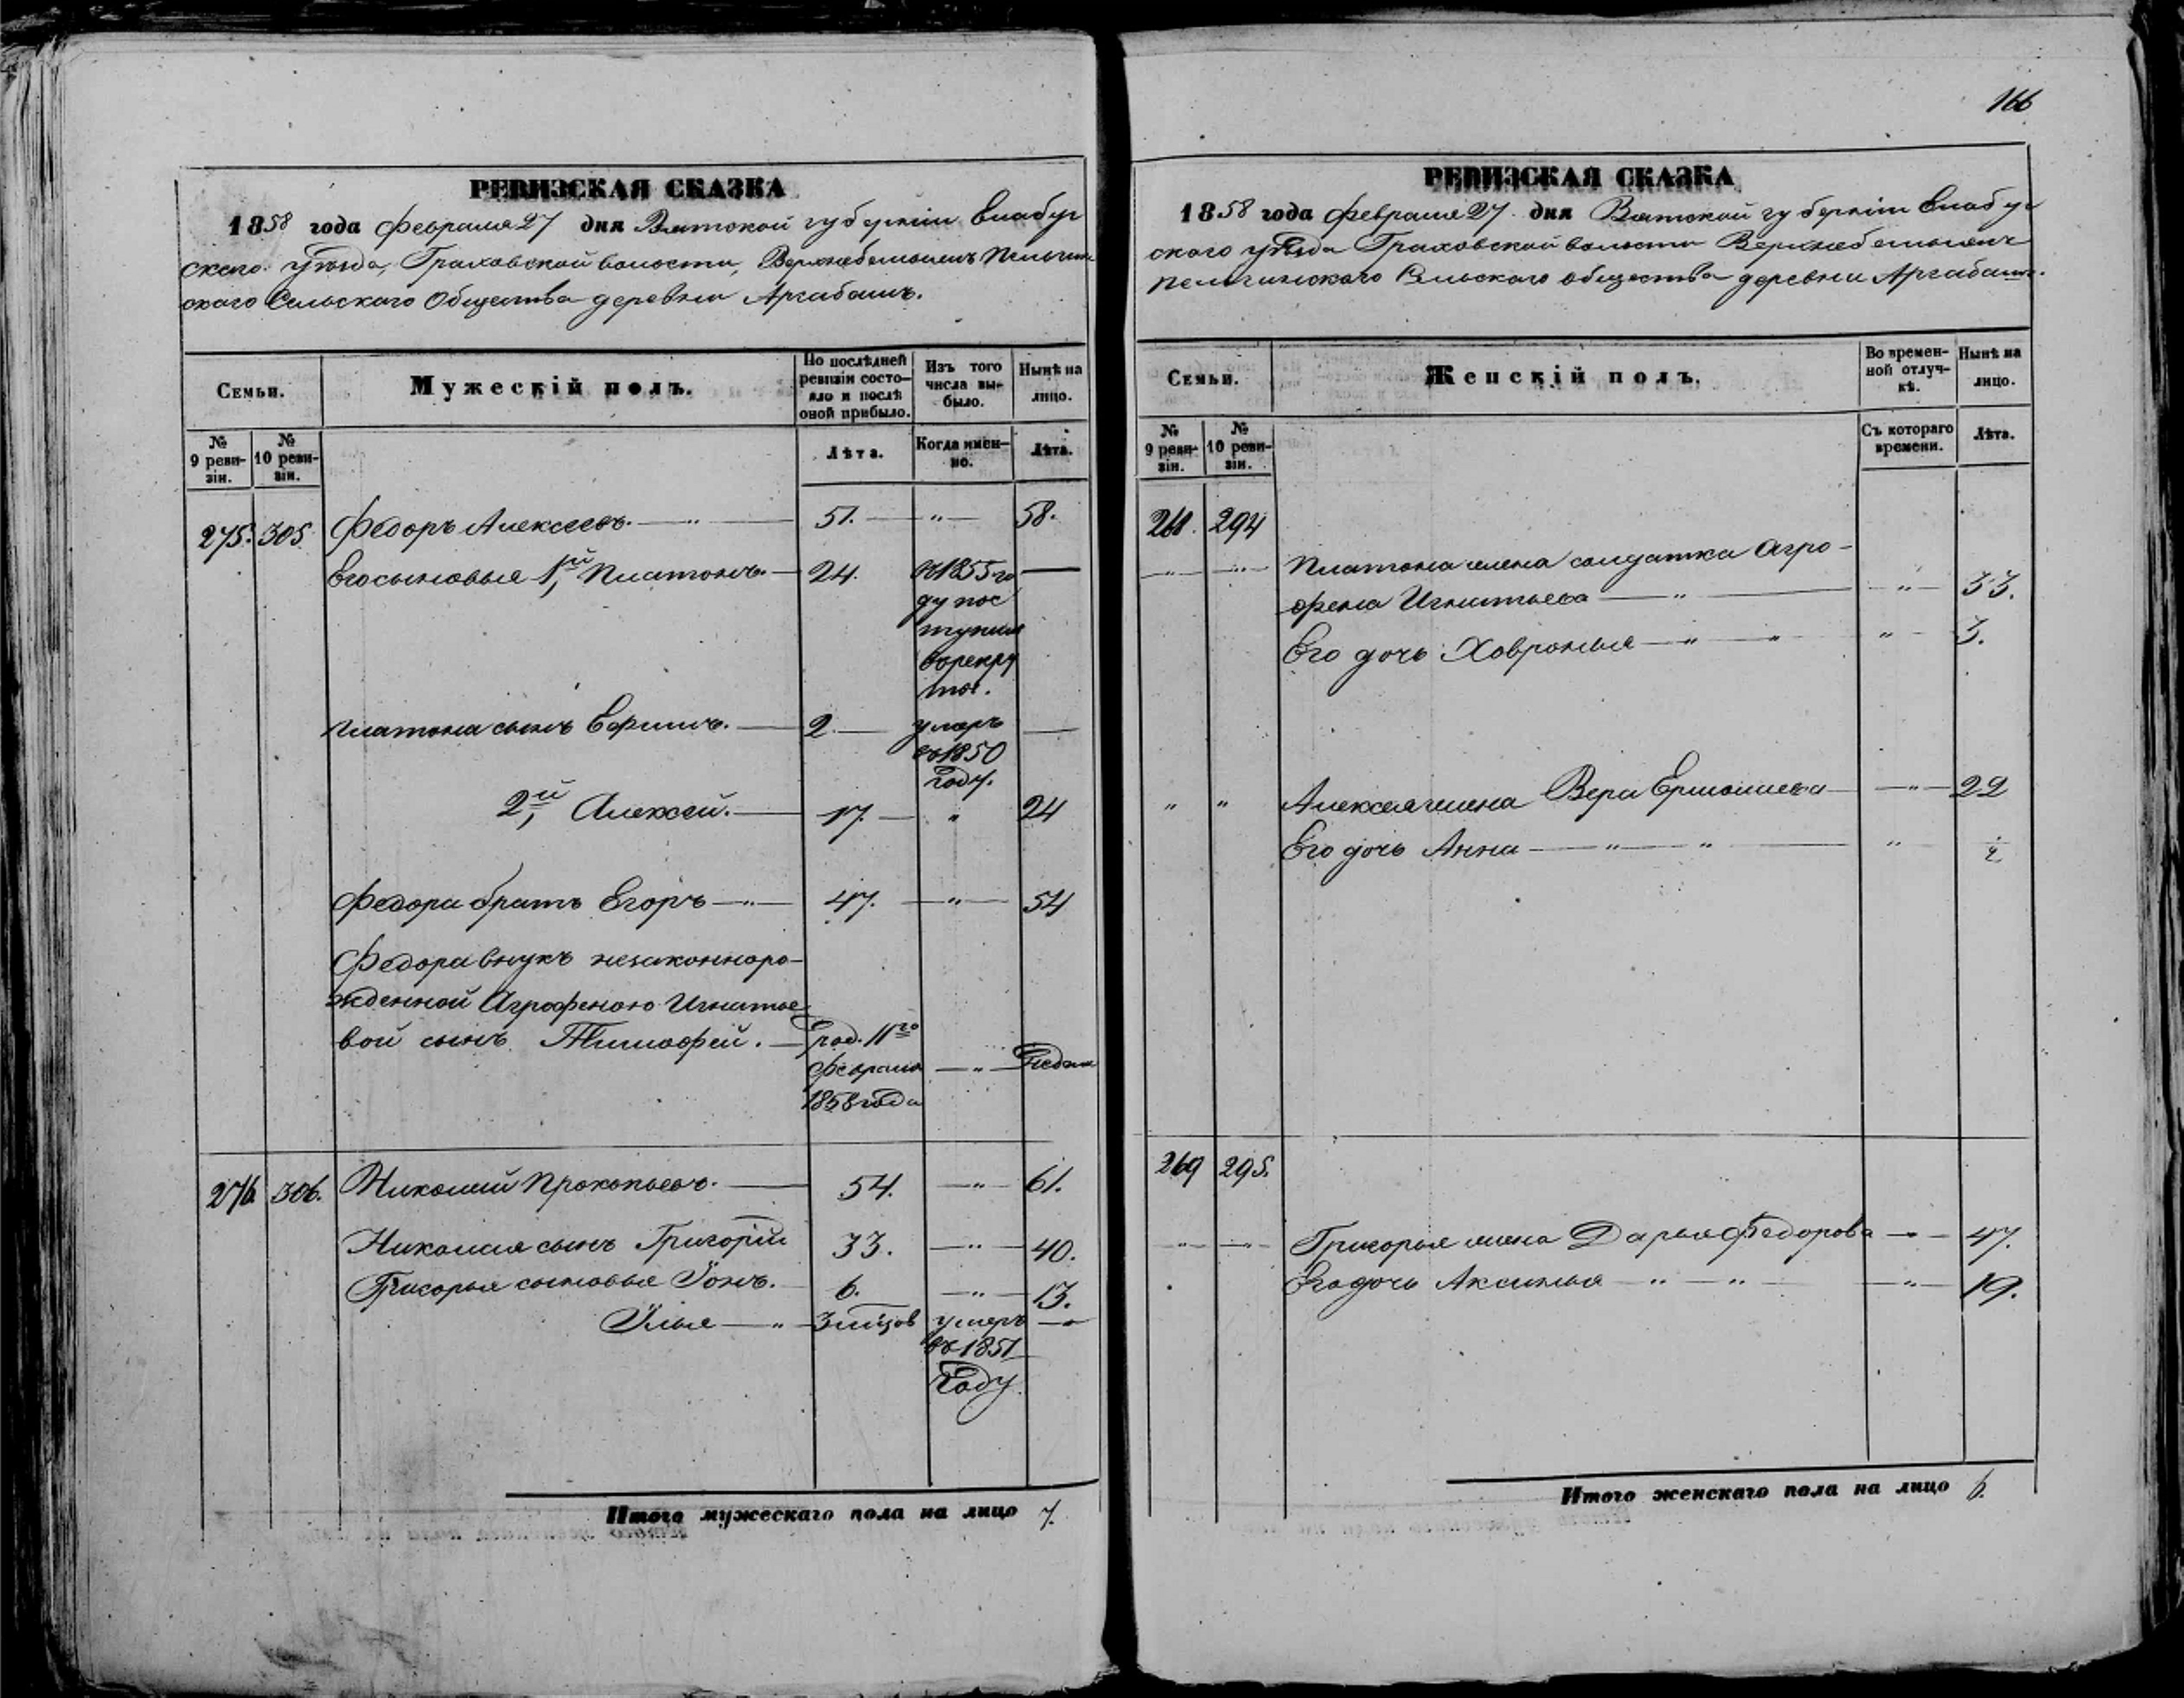 РЕВИЗСКАЯ СКАЗКА
1858 года Февраля 27 дня Вятской губернiи Елабуг
скаго уѣзда, Граховской волости,
скаго Сельскаго Общества деревни Аргабашъ.
Семьи.
Мужескiй полъ.
По послѣдней
ревизiи состо-
яло и послѣ
оной прибыло.
Изъ того
числа вы-
было.
Нынѣ на
лицо.
№
9 реви-
зiи.
№
10 реви-
зiи.
Лѣта.
Когда имен-
но.
Лѣта.
275. 305. Федоръ Алексеевъ. — " — 51. — " — 58.
Его сыновья 1й, Платонъ. — 24. въ 1855 го —
ду пос
тупилъ
въ рекру
ты.
Платона сынъ Ефимъ. — 2. — умеръ —
въ 1850
году.
2й, Алексей. — 17. — " 24
Федора братъ Егоръ — " — 47. — " — 54
Федора внукъ незаконноро-
жденной Агрофеною Игнатье
вой сынъ Тимофей. — род. 11го
Февраля — " —
1858 года
276 306. Николай Прокопьевъ. — 54. — " — 61.
Николая сынъ Григорiй 33. — " — 40.
Григорья сыновья Iонъ. — 6. — " — 13.
Илья — " — 3 мѣсяцов умеръ —
въ 1851
Году
Итого мужескаго пола на лицо 7.
166
РЕВИЗСКАЯ СКАЗКА
1858 года Февраля 27 дня Вятской губернiи Елабуг
скаго уѣзда Граховской волости
Сельскаго общества деревни Аргабашъ.
Семьи.
Женскiй полъ.
Во времен-
ной отлуч-
кѣ.
Нынѣ на
лицо.
№
9 реви-
зiи.
№
10 реви-
зiи.
Съ котораго
времени.
Лѣта.
268. 294
— " — — " — Платона жена солдатка Агро-
фена Игнатьева — " — — " — 33.
Его дочь Ховронья — " — " " — 3.
" " Алексея жена Вера Ермолаева — — " — 22
Его дочь Анна — " — " — "
269 295.
— " — — " — Григорья жена Дарья Федорова — " — 47.
Его дочь Аксинья — " — " — — " — 19.
Итого женскаго пола на лицо 6.